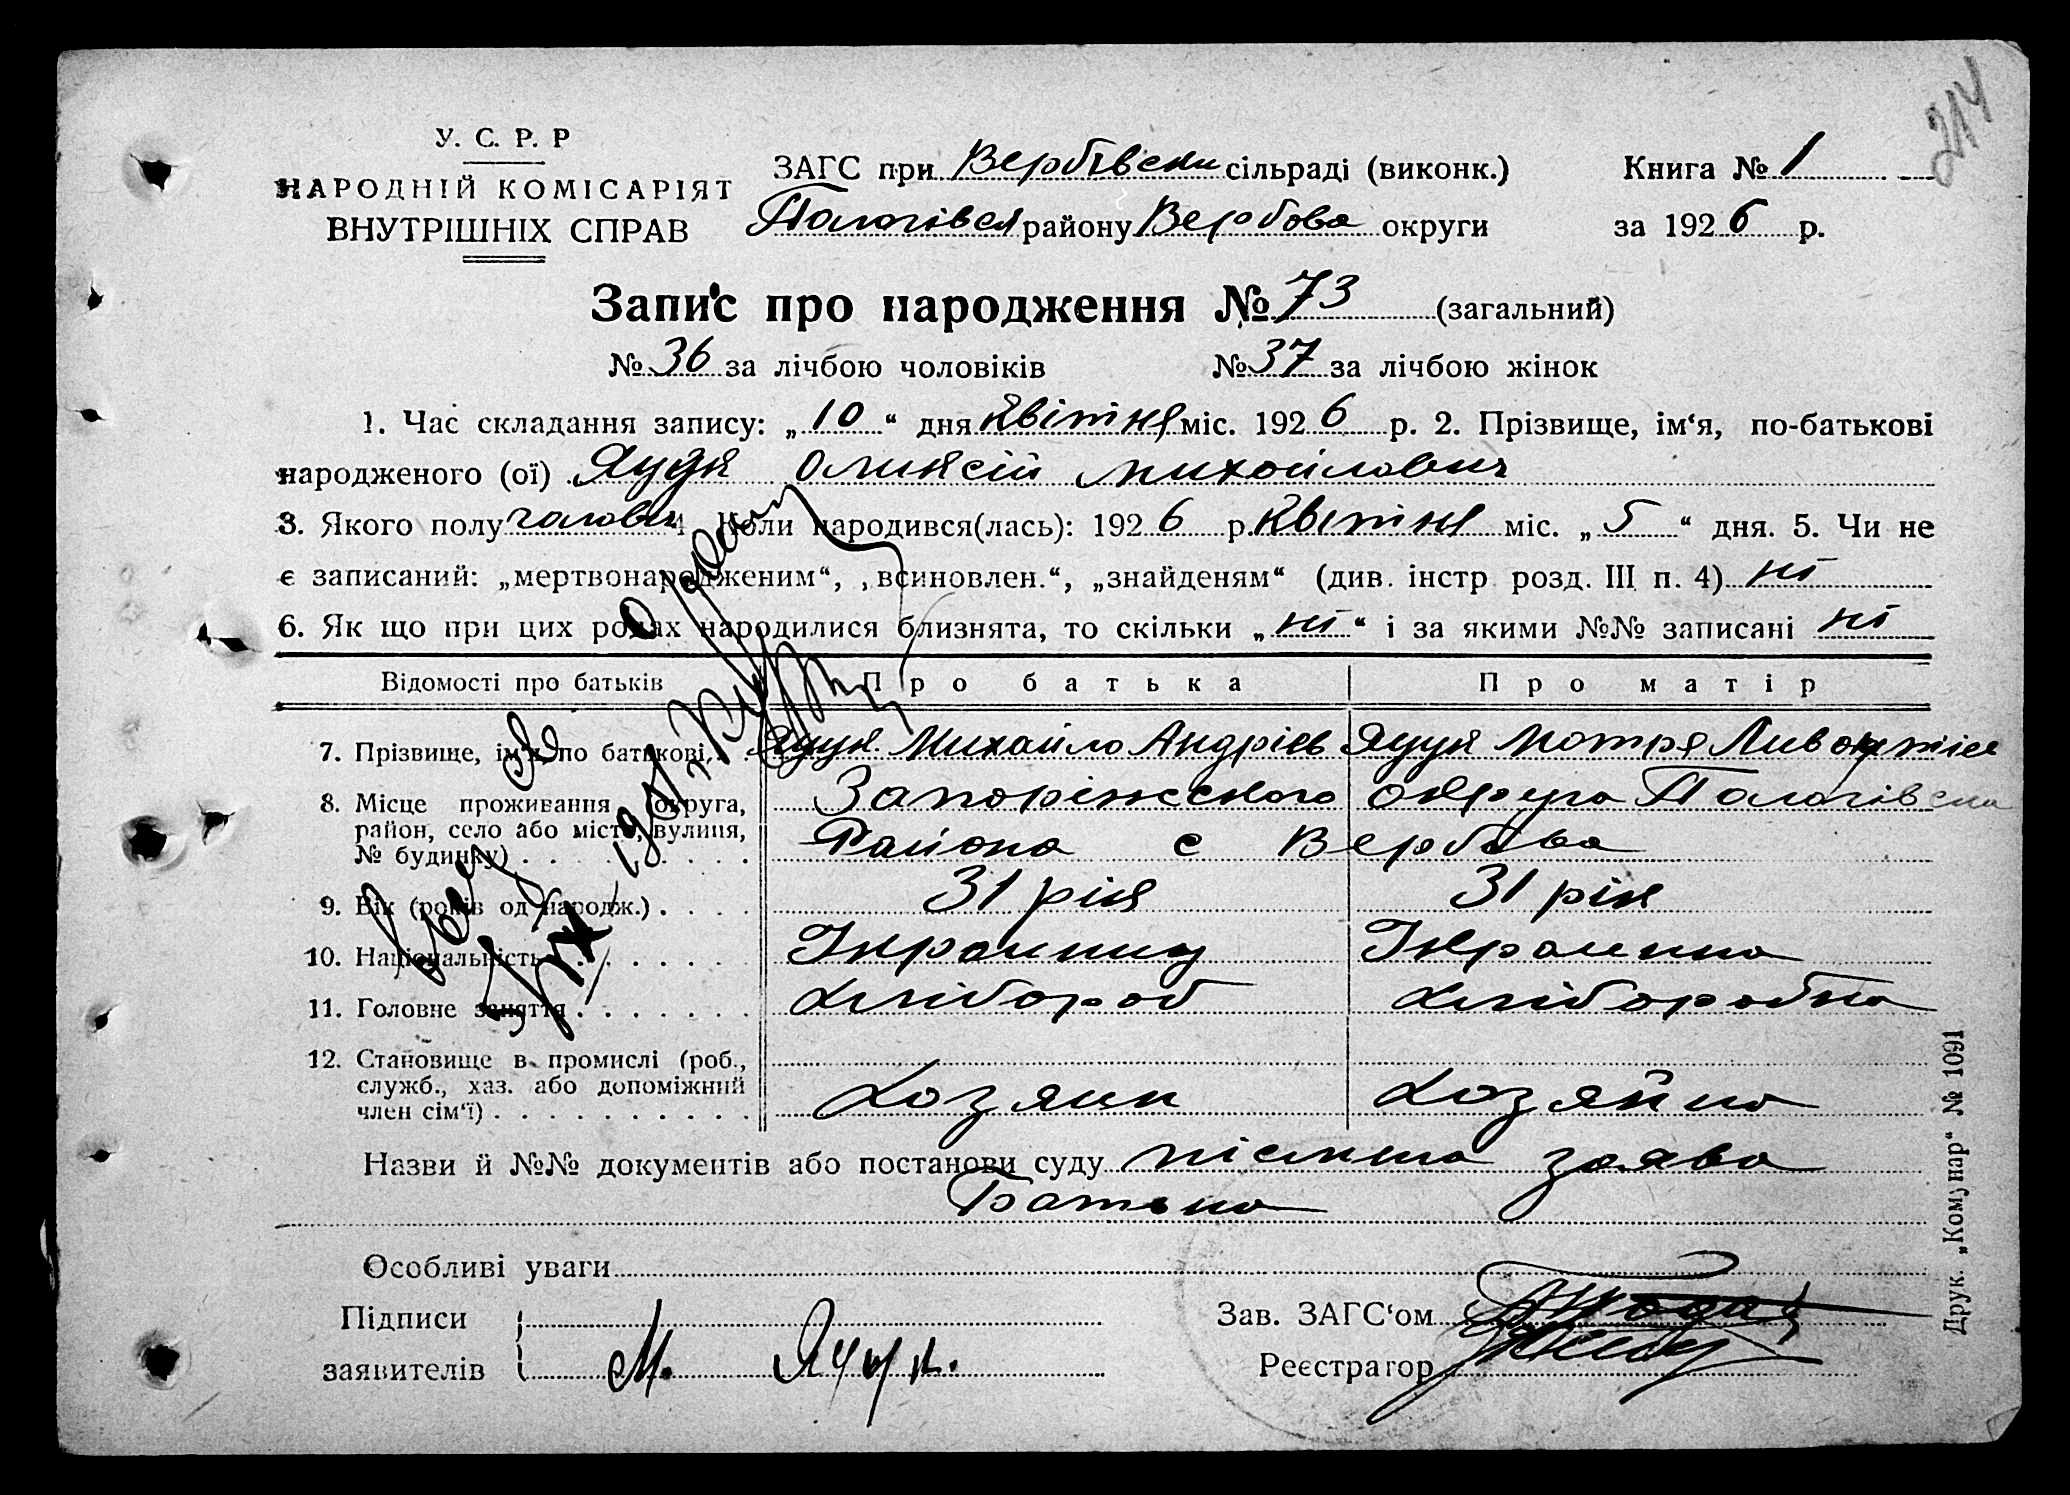 214
У. С. Р. Р
НАРОДНІЙ КОМІСАРІЯТ
ВНУТРІШНІХ СПРАВ
ЗАГС при Вербівски сільраді (виконк.)
Пологівся району Вербова округи
Книга № 1
за 1926 р.
Запис про народження № 73 (загальний)
№ 36 за лічбою чоловіків № 37 за лічбою жінок
1. Час складання запису: „ 10 “ дня Квітня міс. 1926 р. 2. Прізвище, ім‘я, по-батькові
народженого (ої) Яцуя Оликсій Михойлович
3. Якого полу чолові 4 Коли народився(лась): 1926 р. Квітня міс. „ 5 “ дня. 5. Чи не
є записаний: „мертвонародженим“, „всиновлен.“, „знайденям“ (див. інстр розд. III п. 4) ні
6. Як що при цих родах народилися близнята, то скільки „ ні “ і за якими №№ записані ні
Відомості про батьків Про батька Про матір
7. Прізвище, ім'я, по батькові. Михайло Андрієв Мотря
8. Місце проживання (округа, Запоріжського округа Пологівски
район, село або місто, вулиця, Района с Вербова
№ будинку)
9. Вік (років од народж.) 31 рік 31 рік
10. Національність Украинец Украинка
11. Головне заняття Хлібороб Хліборобка
12. Становище в промислі (роб.,
служб., хаз. або допоміжний Хозяин Хозяйка
член сім‘ї)
Назви й №№ документів або постанови суду пісмина заява
Батька
Особливі уваги
Підписи Зав. ЗАГС‘ом
заявителів М. Реєстратор
Друк. „Комунар“ № 1091